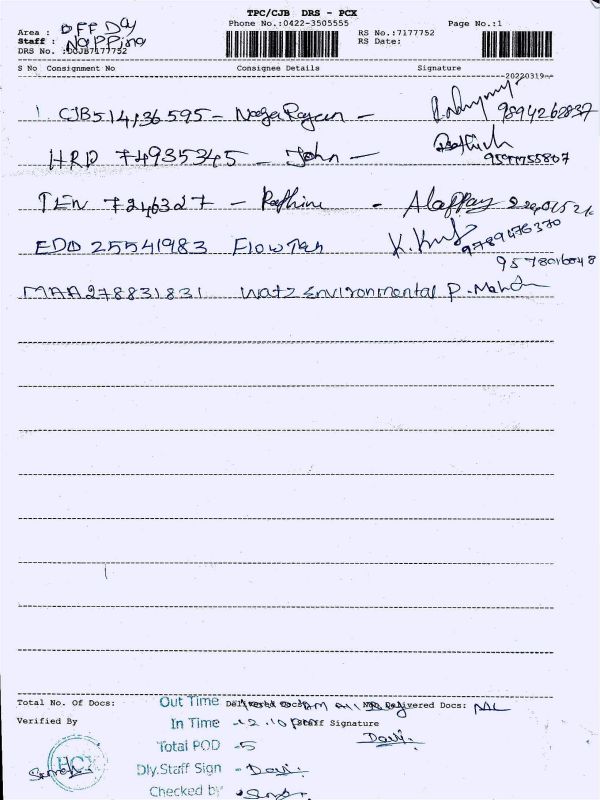 TPC/CJB DRS - PCX
Phone No.:0422-3505555 Page No.:1
Area : OFF Day
Staff : Napping
RS No.:7177752
RS Date:
DRS No. :DCJB7177752
S No Consignment No Consignee Details Signature
20220319
1 CJB514136595 - NagaRajan - 9894262837
HRD 74935345 - John -
TEN 7246327 -
EDD 25541983 FlowTech 9789476370
9578016048
MAA278831831 Watz Environmental P. Mohan
Total No. Of Docs: Out Time Delivered Docs: Not Delivered Docs: NIL
Verified By In Time - 12.10 pm Staff Signature
Total POD - 5 Davi.
HCX Dly.Staff Sign - Davi.
Suresh Checked by